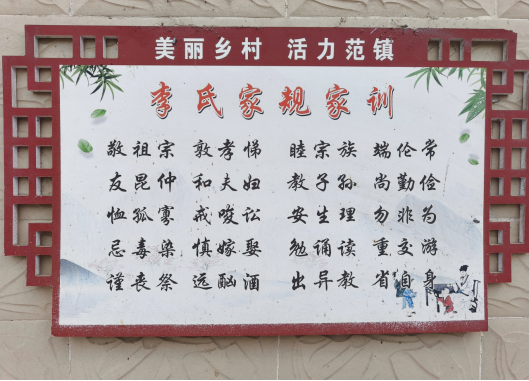 美丽乡村 活力范镇
李氏家规家训
敬祖宗 敦孝悌 睦宗族 端伦常
友昆仲 和夫妇 教子孙 尚勤俭
恤孤寡 戒唆讼 安生理 勿非为
忌毒染 慎嫁娶 勉诵读 重交游
谨丧祭 远酗酒 出异教 省自身